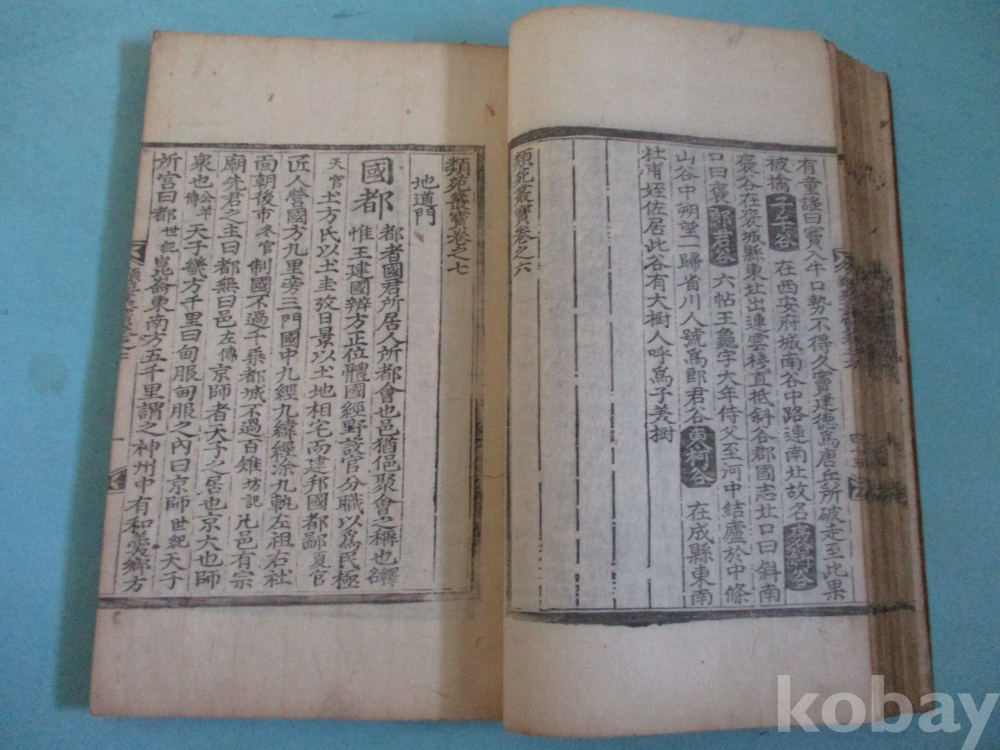 有童謡曰竇入牛口勢不得久竇建德爲唐兵所破走至此果
被擒子午谷在西安府城南谷中路連南北故名褒斜谷
褒谷在褒城縣東北出連雲棧直抵斜谷郡國志北口曰斜南
口曰褒郎君谷六帖王龜字大年侍父至河中結廬於中條
山谷中朔望一歸省川人號爲郎君谷東柯谷在成縣東南
杜甫姪佐居此谷有大樹人呼爲子美樹
類苑叢寶卷之六
類苑叢寶卷之七
地道門
國都都者國君所居人所都會也邑猶俋聚會之稱也釋名
惟王建國辨方正位體國經野設官分職以爲民極
天官土方氏以土圭致日景以土地相宅而建邦國都鄙夏官
匠人營國方九里旁三門國中九經九緯經涂九軌左祖右社
面朝後市冬官制國不過千乘都城不過百雉坊記凡邑有宗
廟先君之主曰都無曰邑左傳京師者天子之居也京大也師
衆也公羊傳天子畿方千里曰甸服甸服之內曰京師世紀天子
所宮曰都世紀崑崙東南方五千里謂之神州中有和羹鄉方
kobay